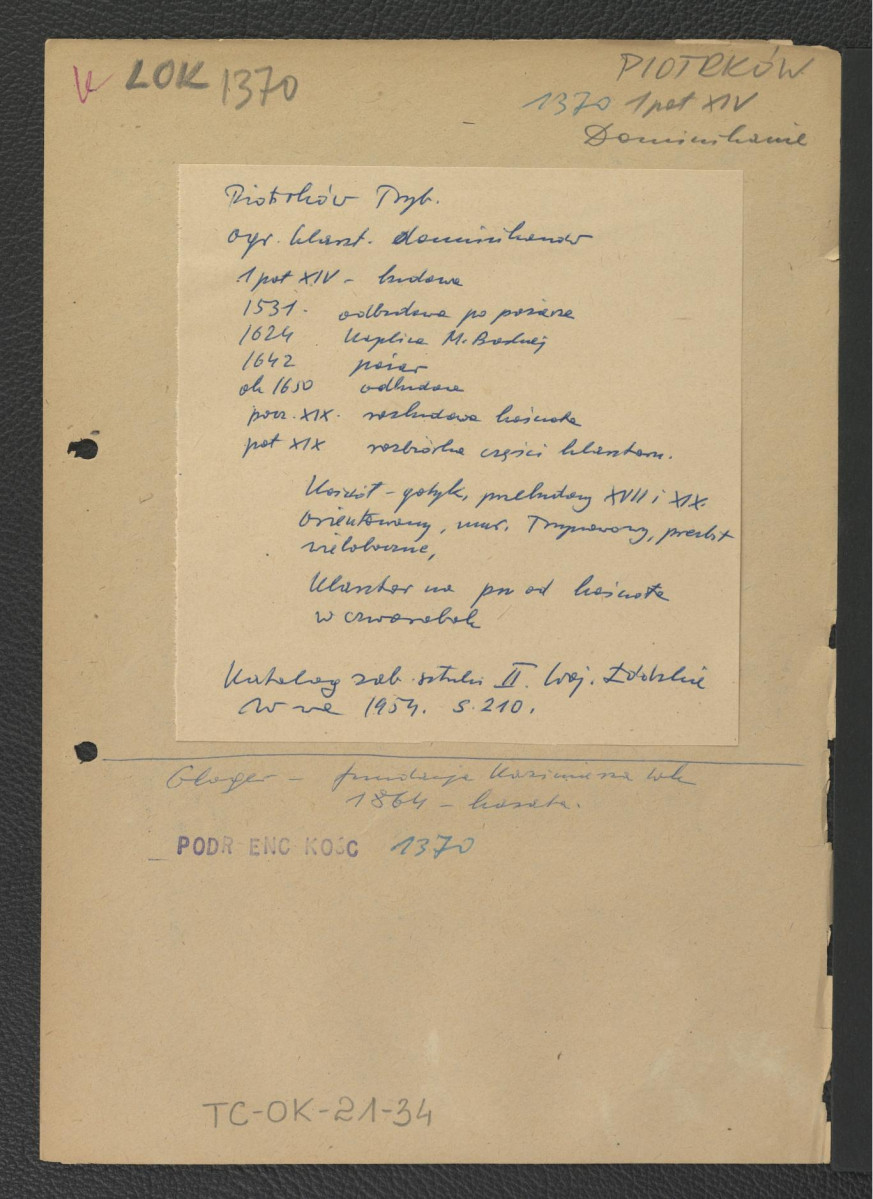 LOK 1370
PIOTRKÓW
1370 1 poł XIV
Dominikanie
Piotrków Tryb.
ogr. klaszt. dominikanów
1 poł XIV - budowa
1531. odbudowa po pożarze
1624 Kaplica M. Boskiej
1642 pożar
ok 1650 odbudowa
pocz. XIX. rozbudowa kościoła
poł XIX rozbiórka części klasztoru.
Kościół - gotyk, przebudowy XVII i XIX.
orientowany, mur. Trzynawowy, prezbit
wieloboczne,
Klasztor na pn od kościoła
w czworobok
Katalog zab. sztuki II. Woj. Łódzkie
W-wa 1954. S. 210.
Gloger - fundacja Kazimierza Wk
1864 - kasata.
PODR ENC KOŚC 1370
TC-OK-21-34